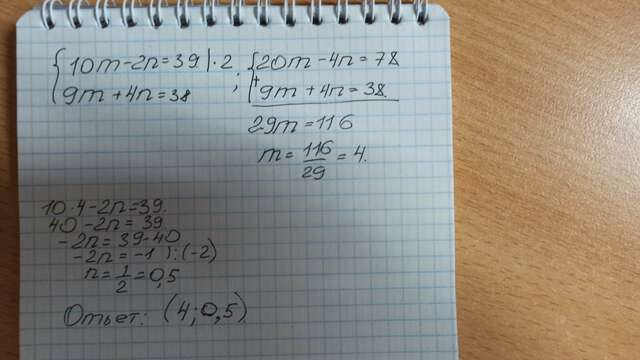 10m - 2n = 39 | · 2
9m + 4n = 38 ;
20m - 4n = 78
+ 9m + 4n = 38.
29m = 116
m = 116/29 = 4.
10 · 4 - 2n = 39.
40 - 2n = 39
- 2n = 39 - 40
- 2n = -1 ) : (-2)
n = 1/2 = 0,5
Ответ: (4; 0,5)